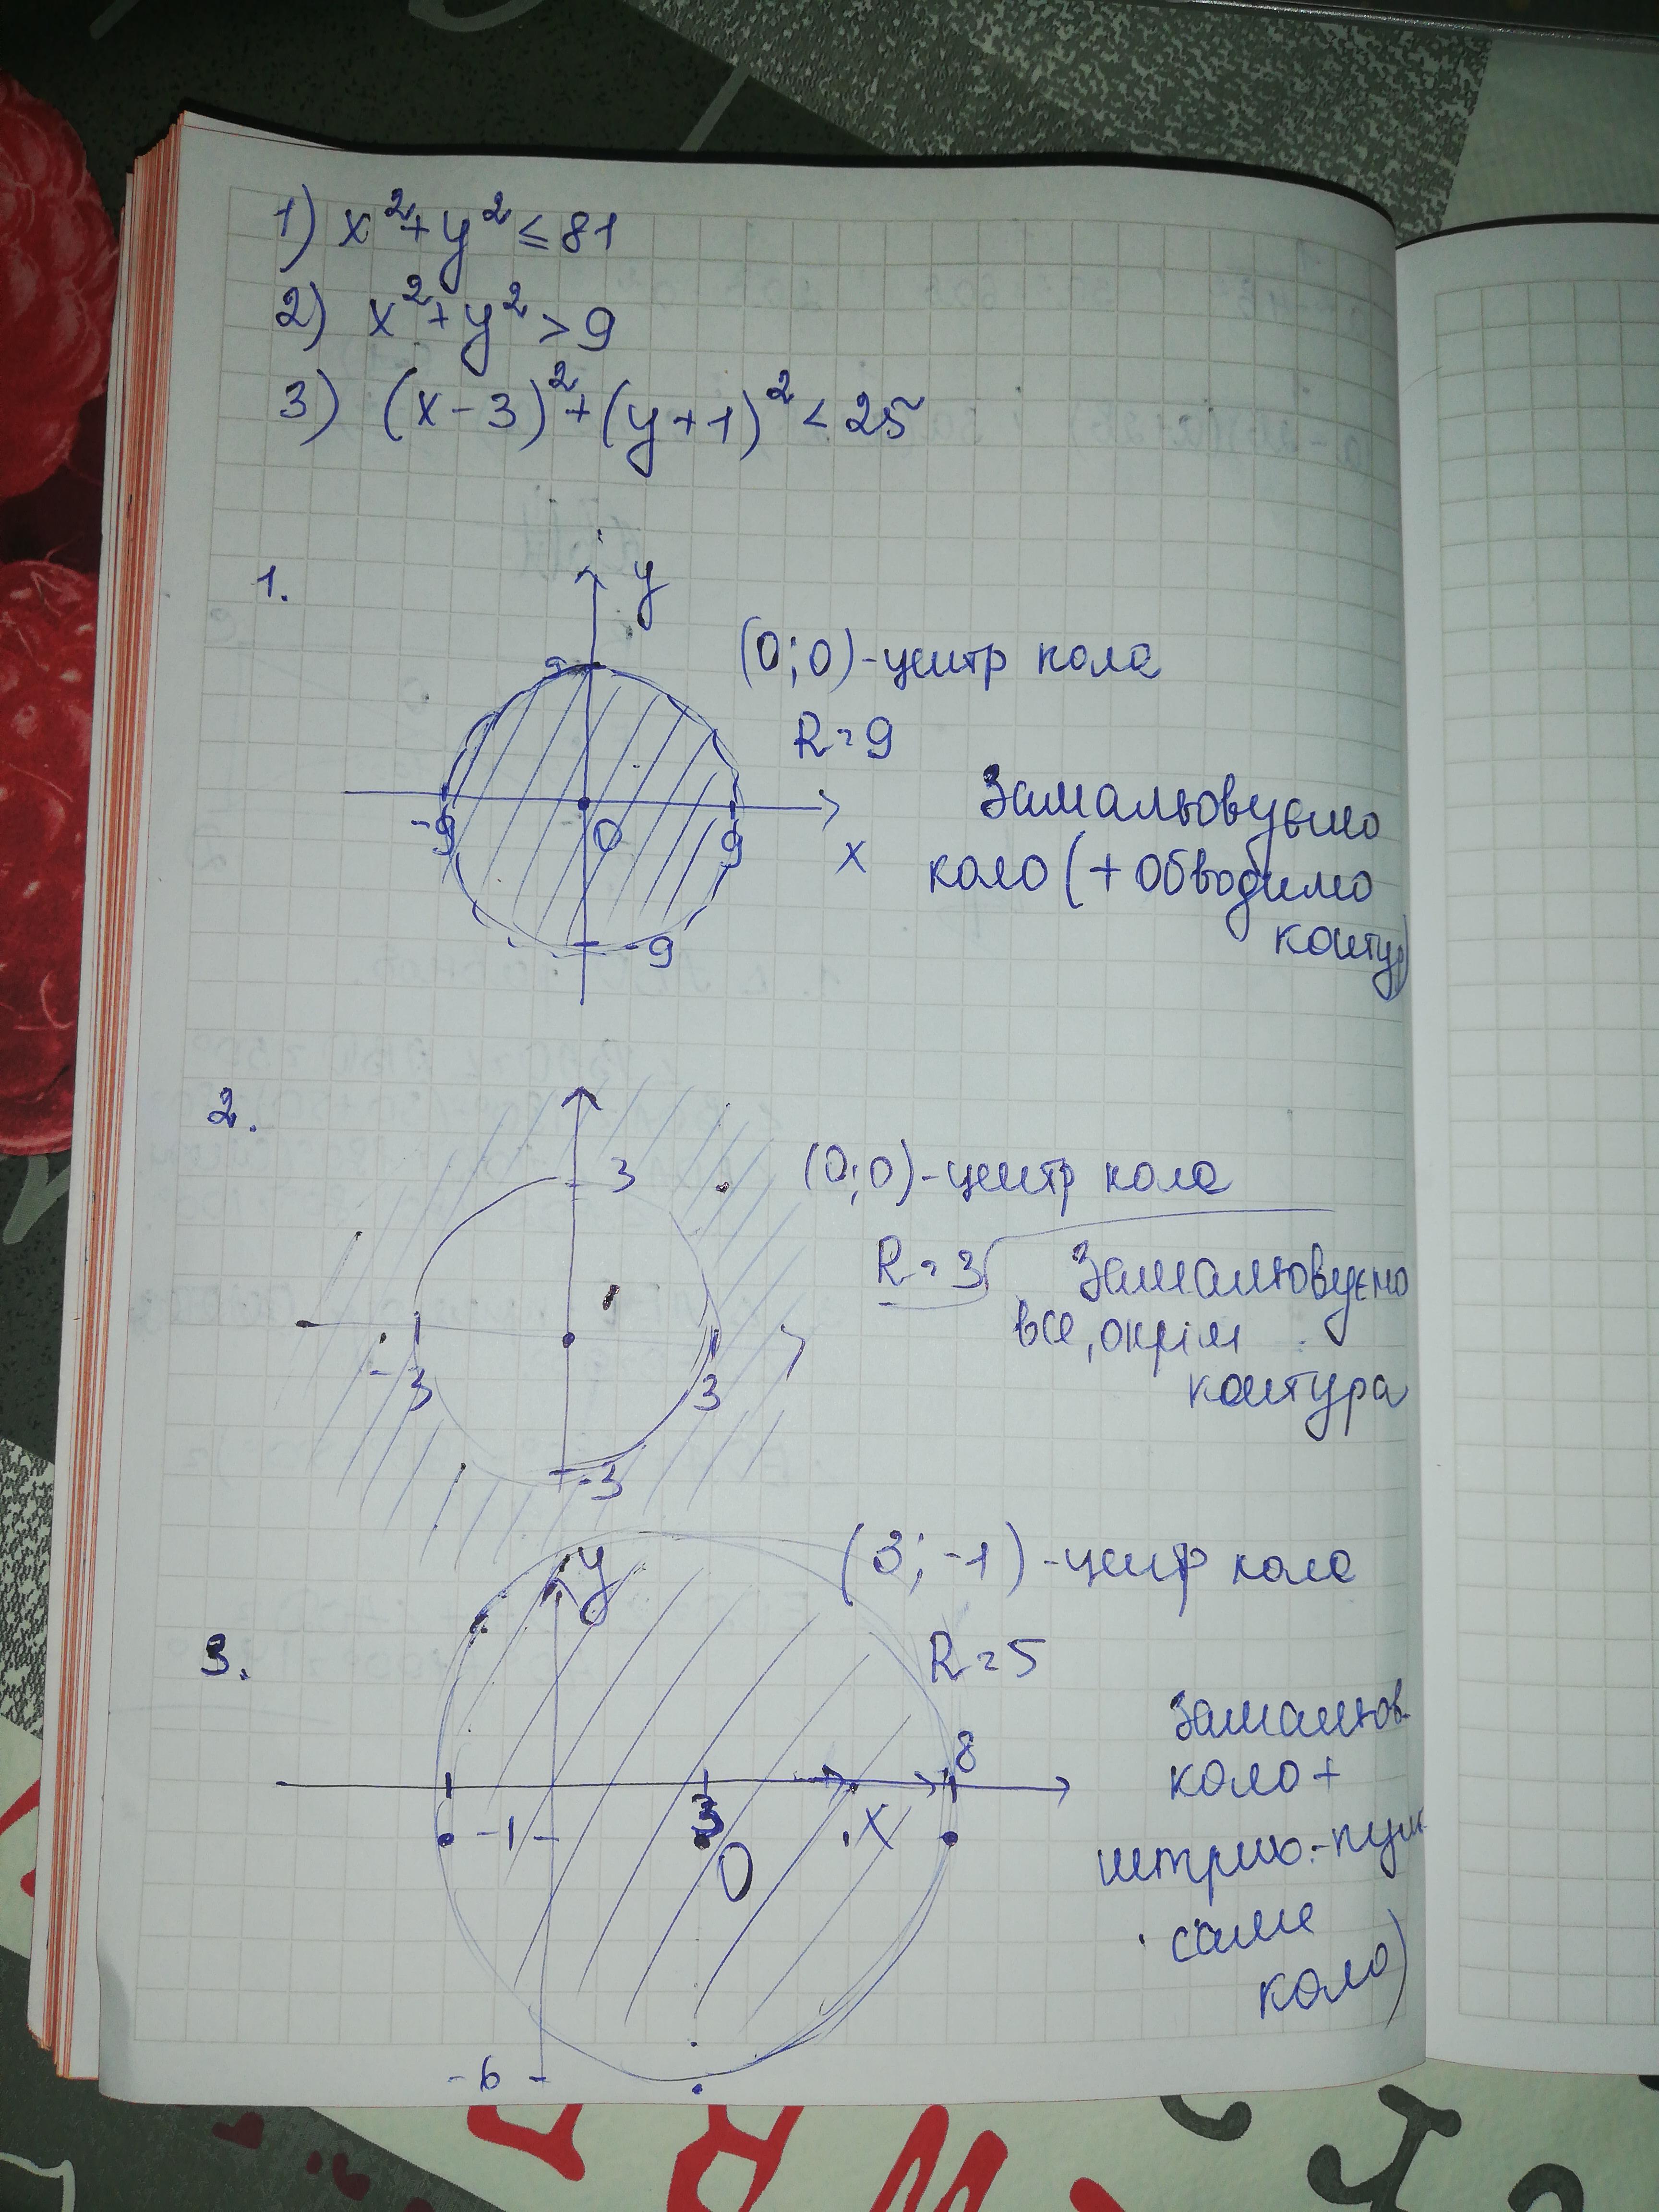 1) x² + y² ≤ 81
2) x² + y² > 9
3) (x - 3)² + (y + 1)² < 25
1.
y
9
(0;0) - центр кола
R = 9
-9
0
9
x
-9
Замальовуємо
коло (+ обводимо
контур)
2.
3
(0;0) - центр кола
R = 3
-3
3
-3
Замальовуємо
все, окрім
контура
3.
y
(3; -1) - центр кола
R = 5
8
-1
3
O
x
-6
замальов.
коло +
штрих.-пунк
саме
коло)